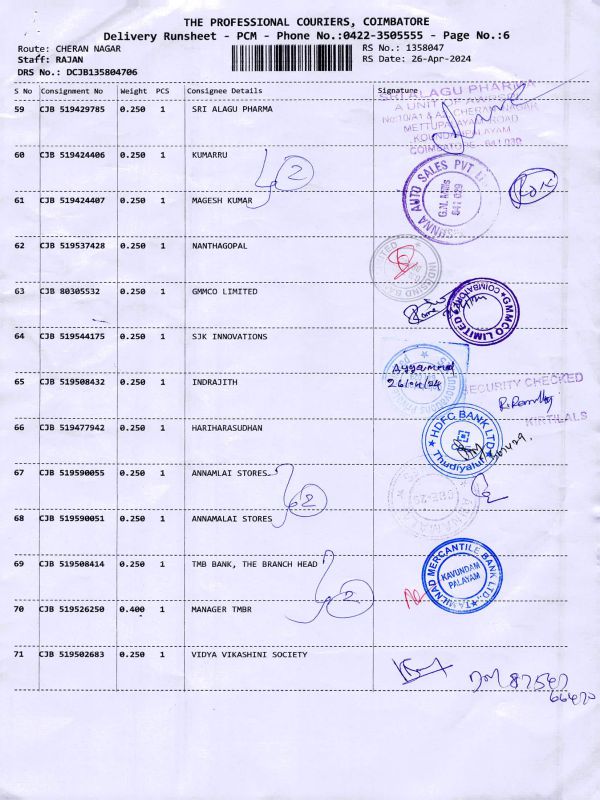 THE PROFESSIONAL COURIERS, COIMBATORE
Delivery Runsheet - PCM - Phone No.:0422-3505555 - Page No.:6
Route: CHERAN NAGAR
RS No.: 1358047
Staff: RAJAN
RS Date: 26-Apr-2024
DRS No.: DCJB135804706
S No Consignment No Weight PCS Consignee Details Signature
59 CJB 519429785 0.250 1 SRI ALAGU PHARMA
SRI ALAGU PHARMA
A UNIT OF
METTUPALAYAM ROAD
COIMBATORE - 641 030
60 CJB 519424406 0.250 1 KUMARRU
2
61 CJB 519424407 0.250 1 MAGESH KUMAR
AUTO SALES PVT
G.N. Mills
641 029
62 CJB 519537428 0.250 1 NANTHAGOPAL
63 CJB 80305532 0.250 1 GMMCO LIMITED
GMMCO LIMITED
COIMBATORE
64 CJB 519544175 0.250 1 SJK INNOVATIONS
26/04/24
65 CJB 519508432 0.250 1 INDRAJITH
SECURITY CHECKED
KIRTILALS
66 CJB 519477942 0.250 1 HARIHARASUDHAN
HDFC BANK LTD
Thudiyalur
67 CJB 519590055 0.250 1 ANNAMLAI STORES
2
CBE-29
68 CJB 519590051 0.250 1 ANNAMALAI STORES
69 CJB 519508414 0.250 1 TMB BANK, THE BRANCH HEAD
TAMILNAD MERCANTILE BANK LTD.,
KAVUNDAM
PALAYAM
70 CJB 519526250 0.400 1 MANAGER TMBR
2
71 CJB 519502683 0.250 1 VIDYA VIKASHINI SOCIETY
87547
66470